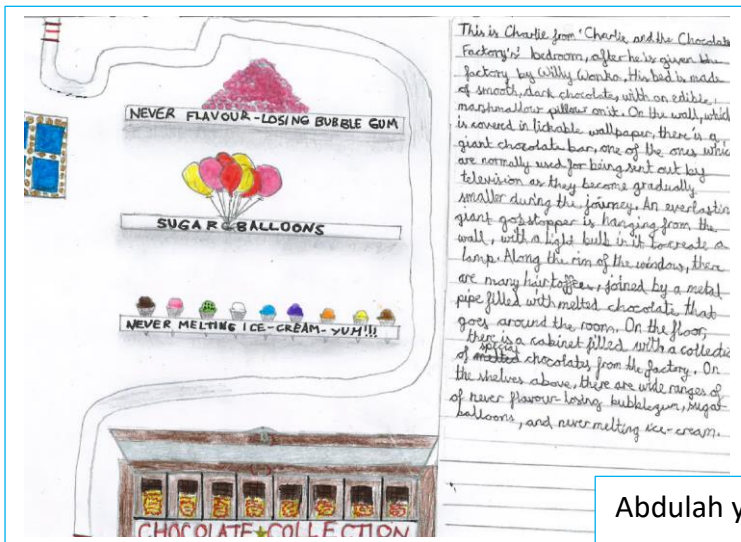 NEVER FLAVOUR-LOSING BUBBLE GUM
SUGAR BALLOONS
NEVER MELTING ICE-CREAM-YUM!!!
CHOCOLATE COLLECTION
This is Charlie from 'Charlie and the Chocolate
Factory's' bedroom, after he is given the
factory by Willy Wonka. His bed is made
of smooth, dark chocolate, with an edible,
marshmallow pillow on it. On the wall, which
is covered in lickable wallpaper, there is a
giant chocolate bar, one of the ones which
are normally used for being sent out by
television as they become gradually
smaller during the journey. An everlastin
giant gobstopper is hanging from the
wall, with a light bulb in it to create a
lamp. Along the rim of the window, there
are many hair toffees, joined by a metal
pipe filled with melted chocolate that
goes around the room. On the floor,
there is a cabinet filled with a collectio
of special chocolates from the factory. On
the shelves above, there are wide ranges of
of never flavour-losing bubblegum, sugar
balloons, and never melting ice-cream.
Abdulah y